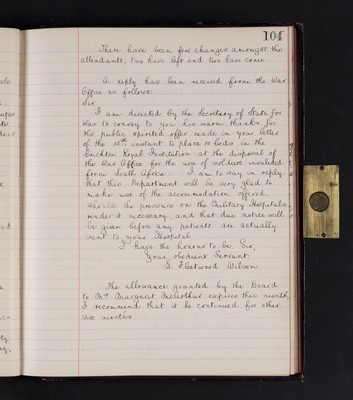 104
There have been few changes amongst the
attendants, two have left and two have come.
A reply has been received from the War
Office as follows:
Sir,
I am directed by the Secretary of State for
War to convey to you his warm thanks for
the public spirited offer made in your letter
of the 15th instant to place 10 beds in the
Crichton Royal Institution at the disposal of
the War Office for the use of soldiers invalided
from South Africa. I am to say in reply
that this Department will be very glad to
make use of the accommodation offered
should the pressure on the Military Hospitals
render it necessary, and that due notice will
be given before any patients are actually
sent to your Hospital.
I have the honour to be, Sir,
Your obedient Servant,
G. Fleetwood Wilson.
The allowance granted by the Board
to Mrs Margaret expires this month,
I recommend that it be continued for other
six months.